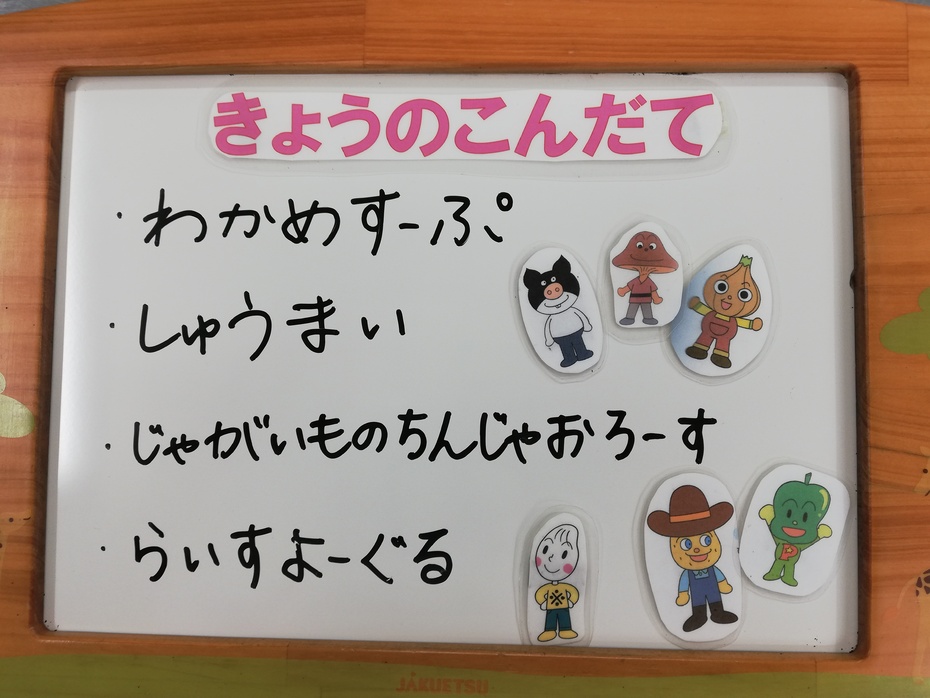 きょうのこんだて
・わかめすーぷ
・しゅうまい
・じゃがいものちんじゃおろーす
・らいすよーぐる
P
JAKUETSU